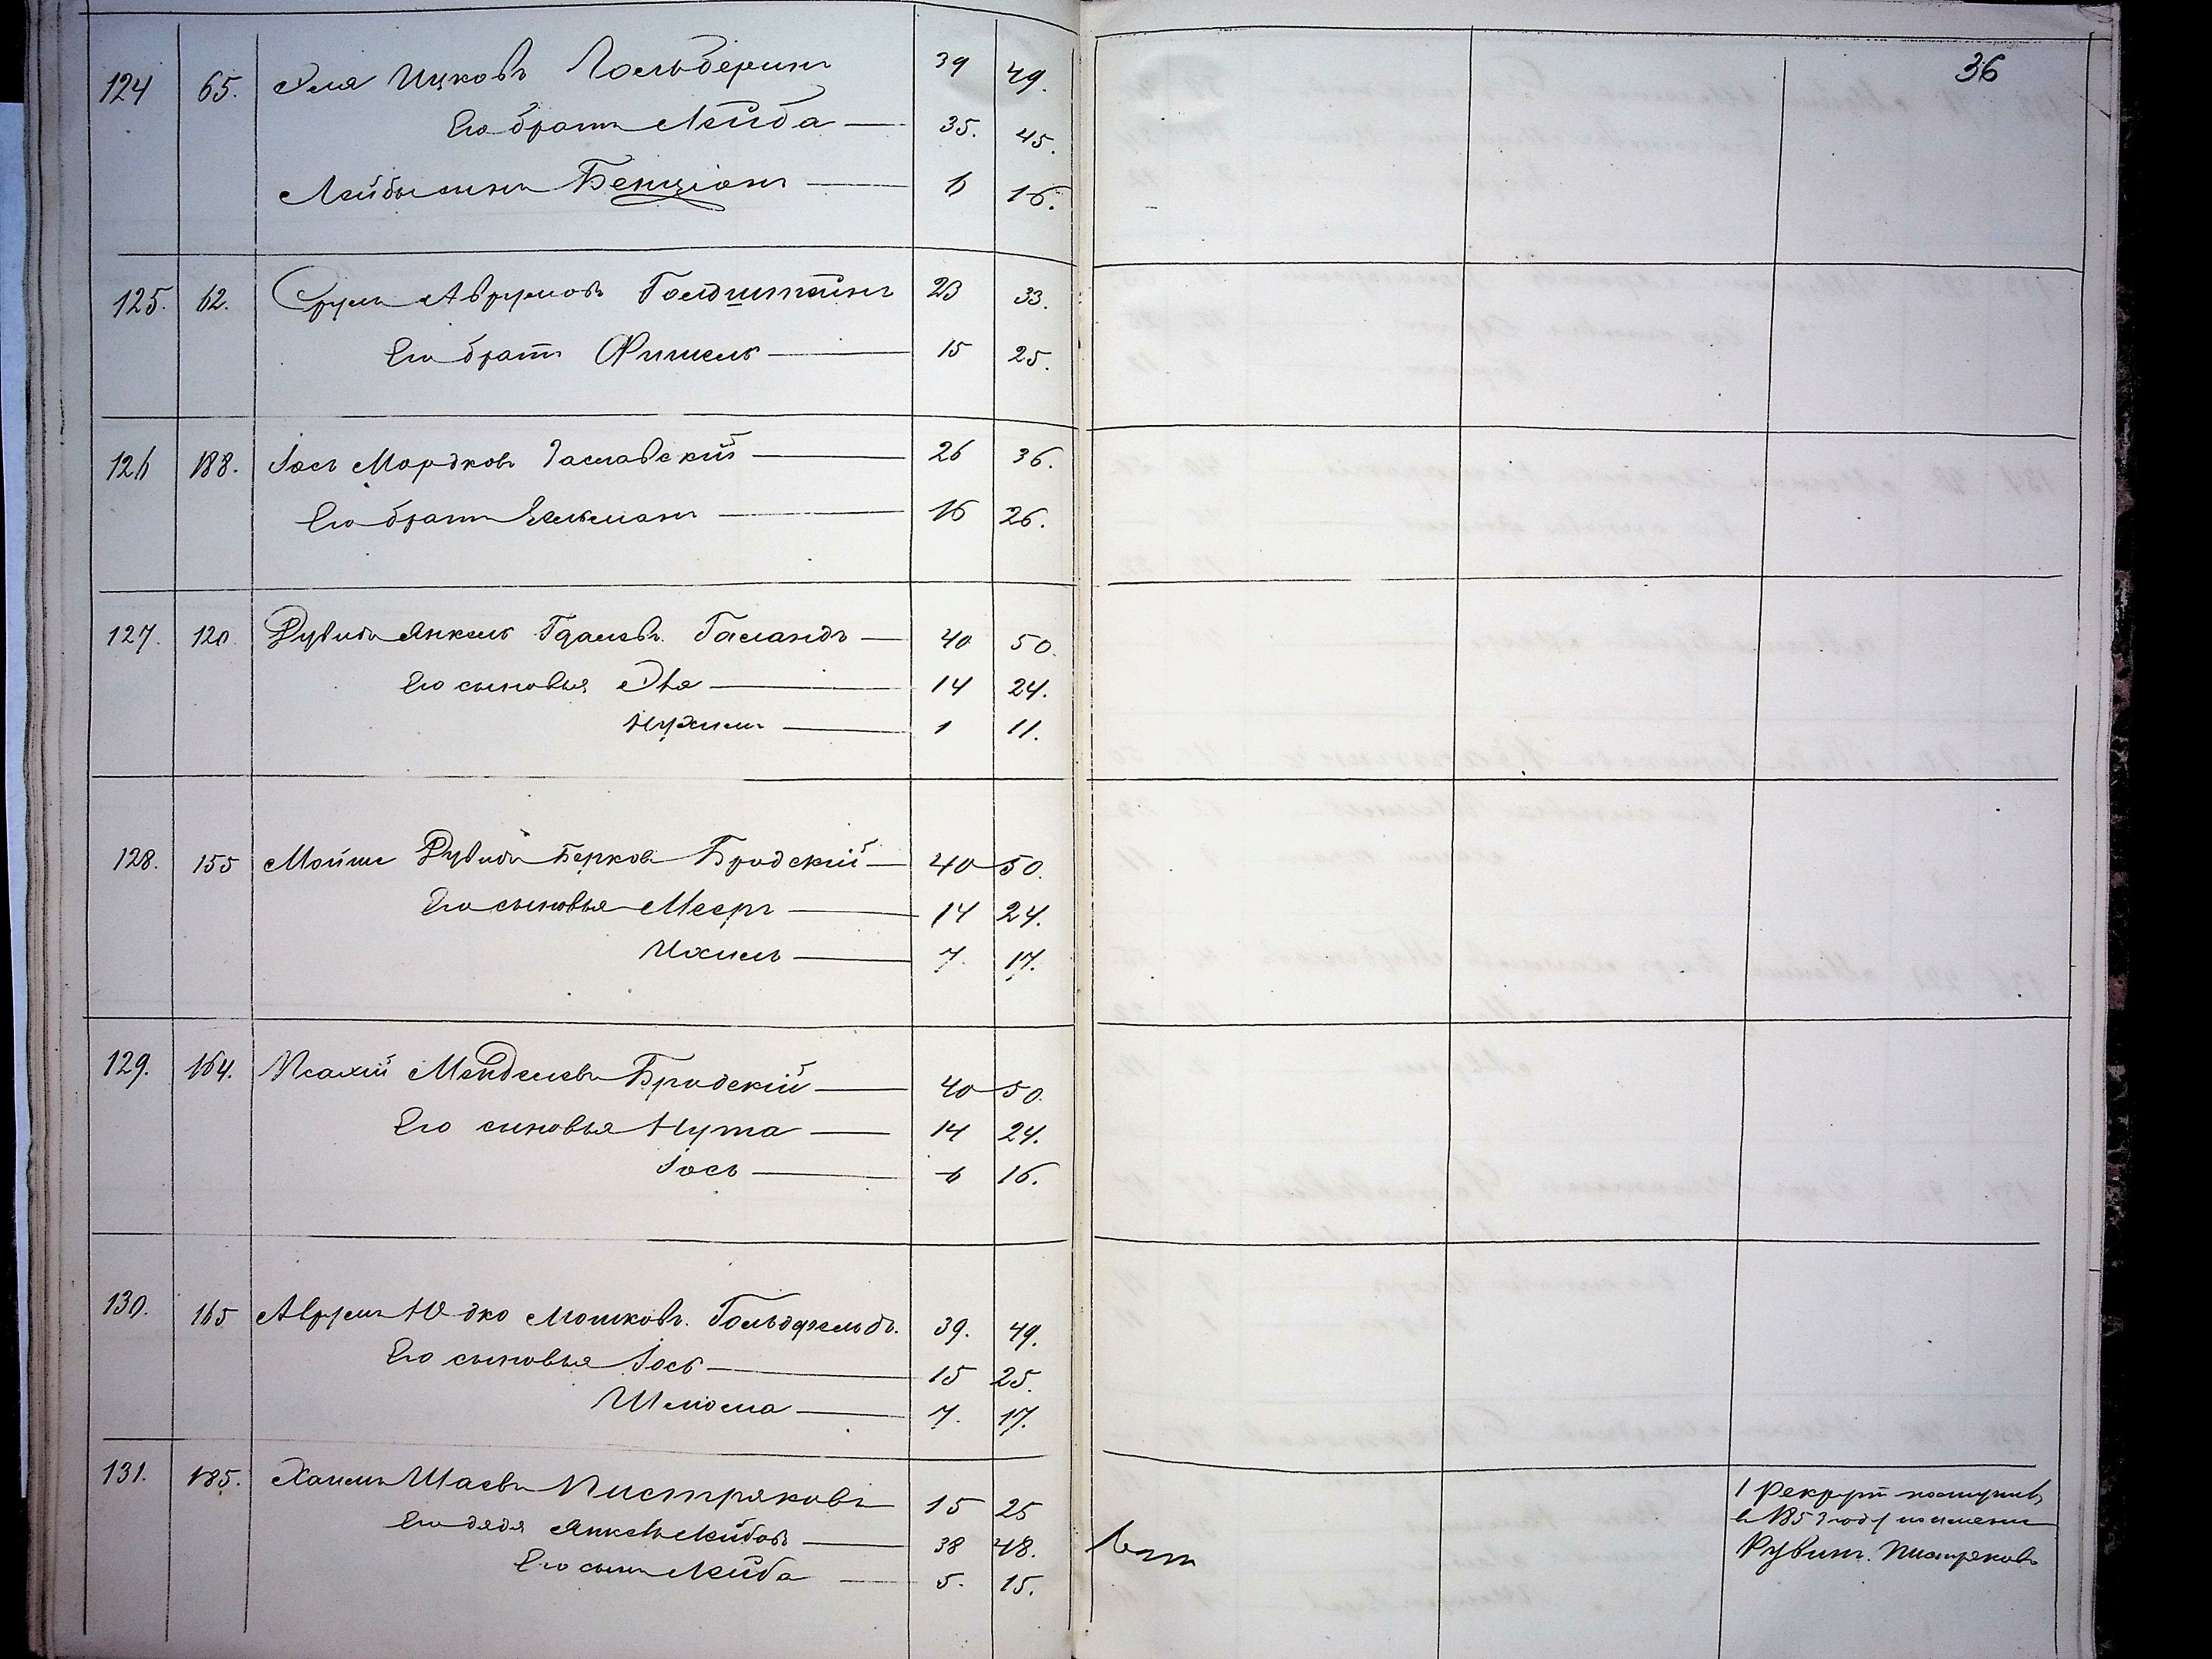 36
124 65. Эля Ицковъ Гольберинъ 39 49.
Его братъ Лейба — 35. 45.
Лейбы сынъ Бенціонъ — 6 16.
125. 62. Сруль Аврумовъ Голдштейнъ 23 33.
Его братъ Фишель — 15 25.
126 188. Іось Мордковъ Заславскій — 26 36.
Его братъ Зельманъ — 16 26.
127. 120. Рувинъ Янкель Гдалевъ. Галандъ — 40 50.
Его сыновья — 14 24.
Нухимъ — 1 11.
128. 155 Мойше Рувинъ Берковъ Бродскій — 40 50.
Его сыновья Мееръ — 14 24.
Ихиль — 7. 17.
129. 164. Псахій Менделевъ Бродскій — 40 50.
Его сыновья Нута — 14 24.
Іось — 6 16.
130. 165 Аврумъ Юдко Мошковъ. Гольдфельдъ. 39. 49.
Его сыновья Іось — 15 25.
Шлёма — 7. 17.
131. 185. Хаимъ Шаевъ Пистряковъ 15 25
Его дядя Янкель Лейбовъ — 38 48.
Его сынъ Лейба — 5. 15.
1 Рекрутъ поступилъ
в 1853 году по имени
Рувинъ. Пистряковъ